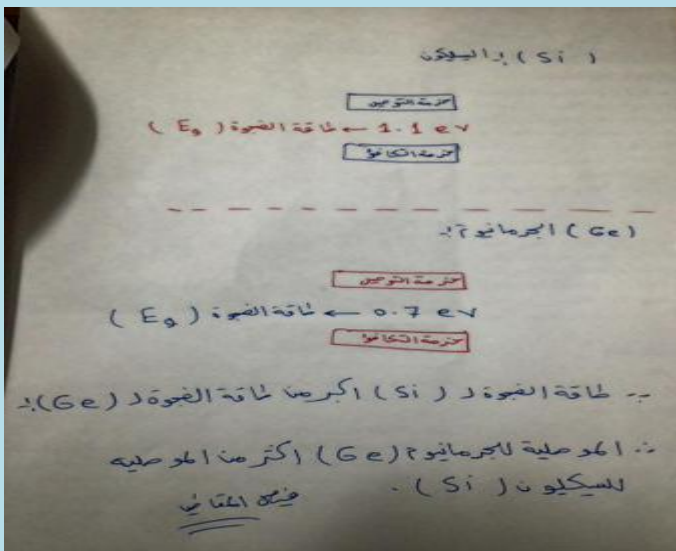 (Si) السيلكون :
حزمة التوصيل
1.1 eV ← طاقة الفجوة (Eg)
حزمة التكافؤ
(Ge) الجرمانيوم :
حزمة التوصيل
0.7 eV ← طاقة الفجوة (Eg)
حزمة التكافؤ
∵ طاقة الفجوة لـ (Si) اكبر من طاقة الفجوة لـ (Ge) :
∴ الموصلية للجرمانيوم (Ge) اكثر من الموصليه
للسيكليون (Si) .